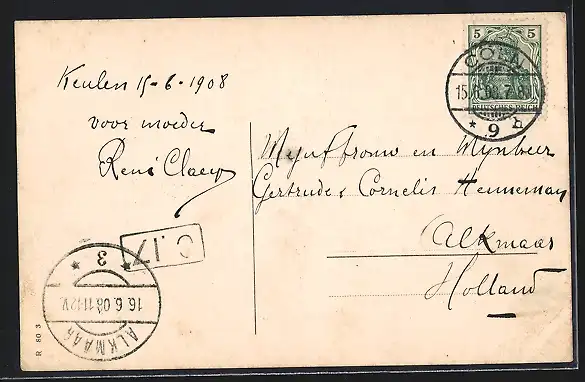 Keulen 15-6-1908
voor moeder
René
5 5
CÖLN
15.6.08. 7-8
DEUTSCHES REICH
* 9 b
Mynfrouw en Mynheer
Gertrudes Cornelis Henneman
Alkmaar
Holland
C.17
* 3 *
16.6.08 11-12V.
ALKMAAR
R 80 3